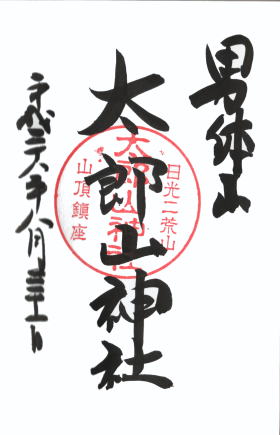 男体山
太郎山神社
日光二荒山
太郎山神社
山頂鎮座
平成二六年八月三十一日